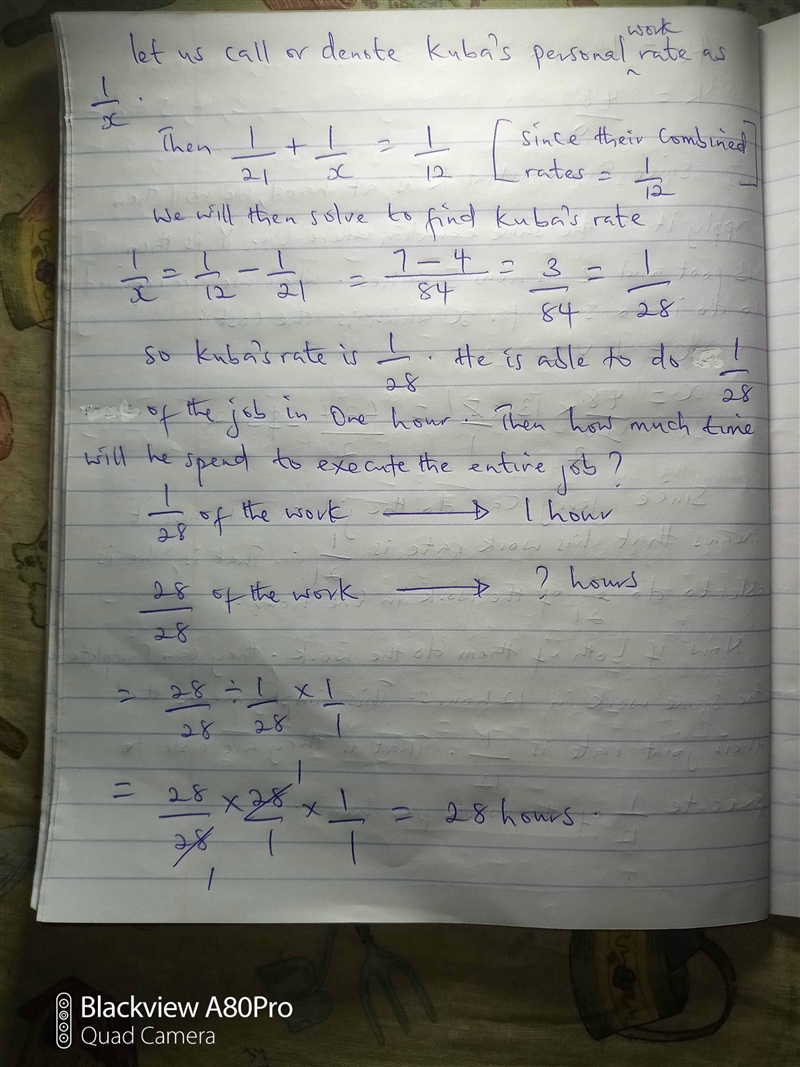 let us call or denote Kuba's personal work rate as
1/x.
Then 1/21 + 1/x = 1/12 [since their combined rates = 1/12]
We will then solve to find Kuba's rate
1/x = 1/12 - 1/21 = 7-4/84 = 3/84 = 1/28
So Kuba's rate is 1/28. He is able to do 1/28
of the job in One hour. Then how much time
will he spend to execute the entire job?
1/28 of the work → 1 hour
28/28 of the work → ? hours
= 28/28 ÷ 1/28 × 1/1
= 28/28 × 28/1 × 1/1 = 28 hours.
1
1
Blackview A80Pro
Quad Camera